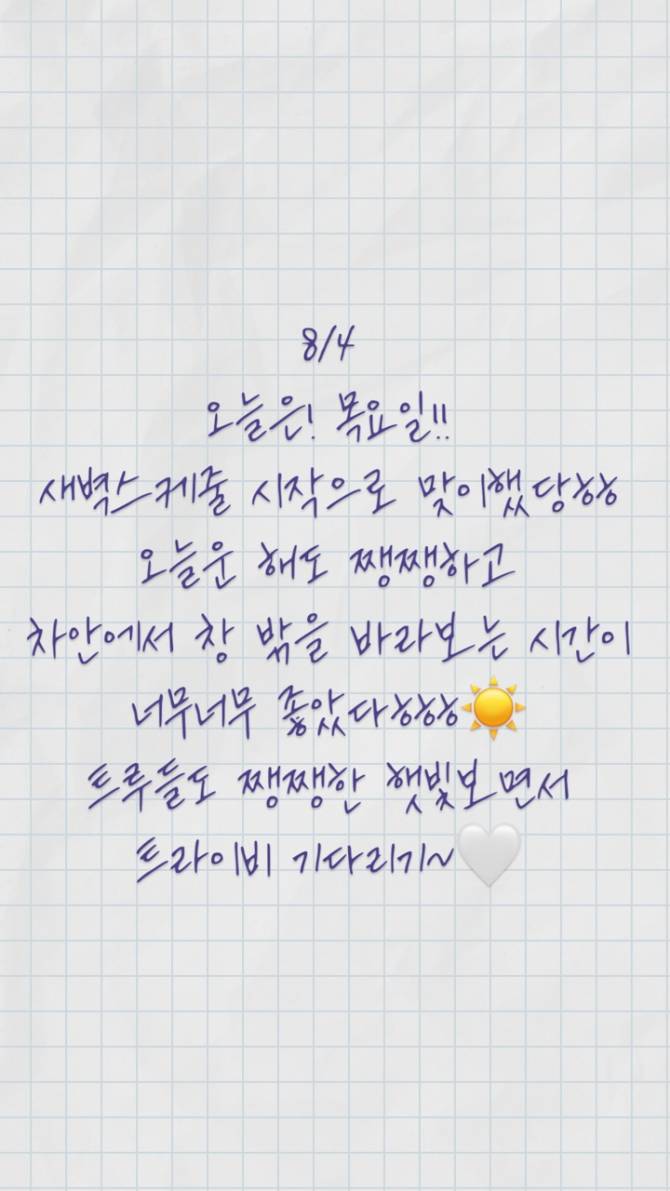 8/4
오늘은! 목요일!!
새벽스케줄 시작으로 맞이했당ㅎㅎ
오늘운 해도 쨍쨍하고
차안에서 창 밖을 바라보는 시간이
너무너무 좋았다ㅎㅎㅎ☀️
트루들도 쨍쨍한 햇빛보면서
트라이비 기다리기~🤍